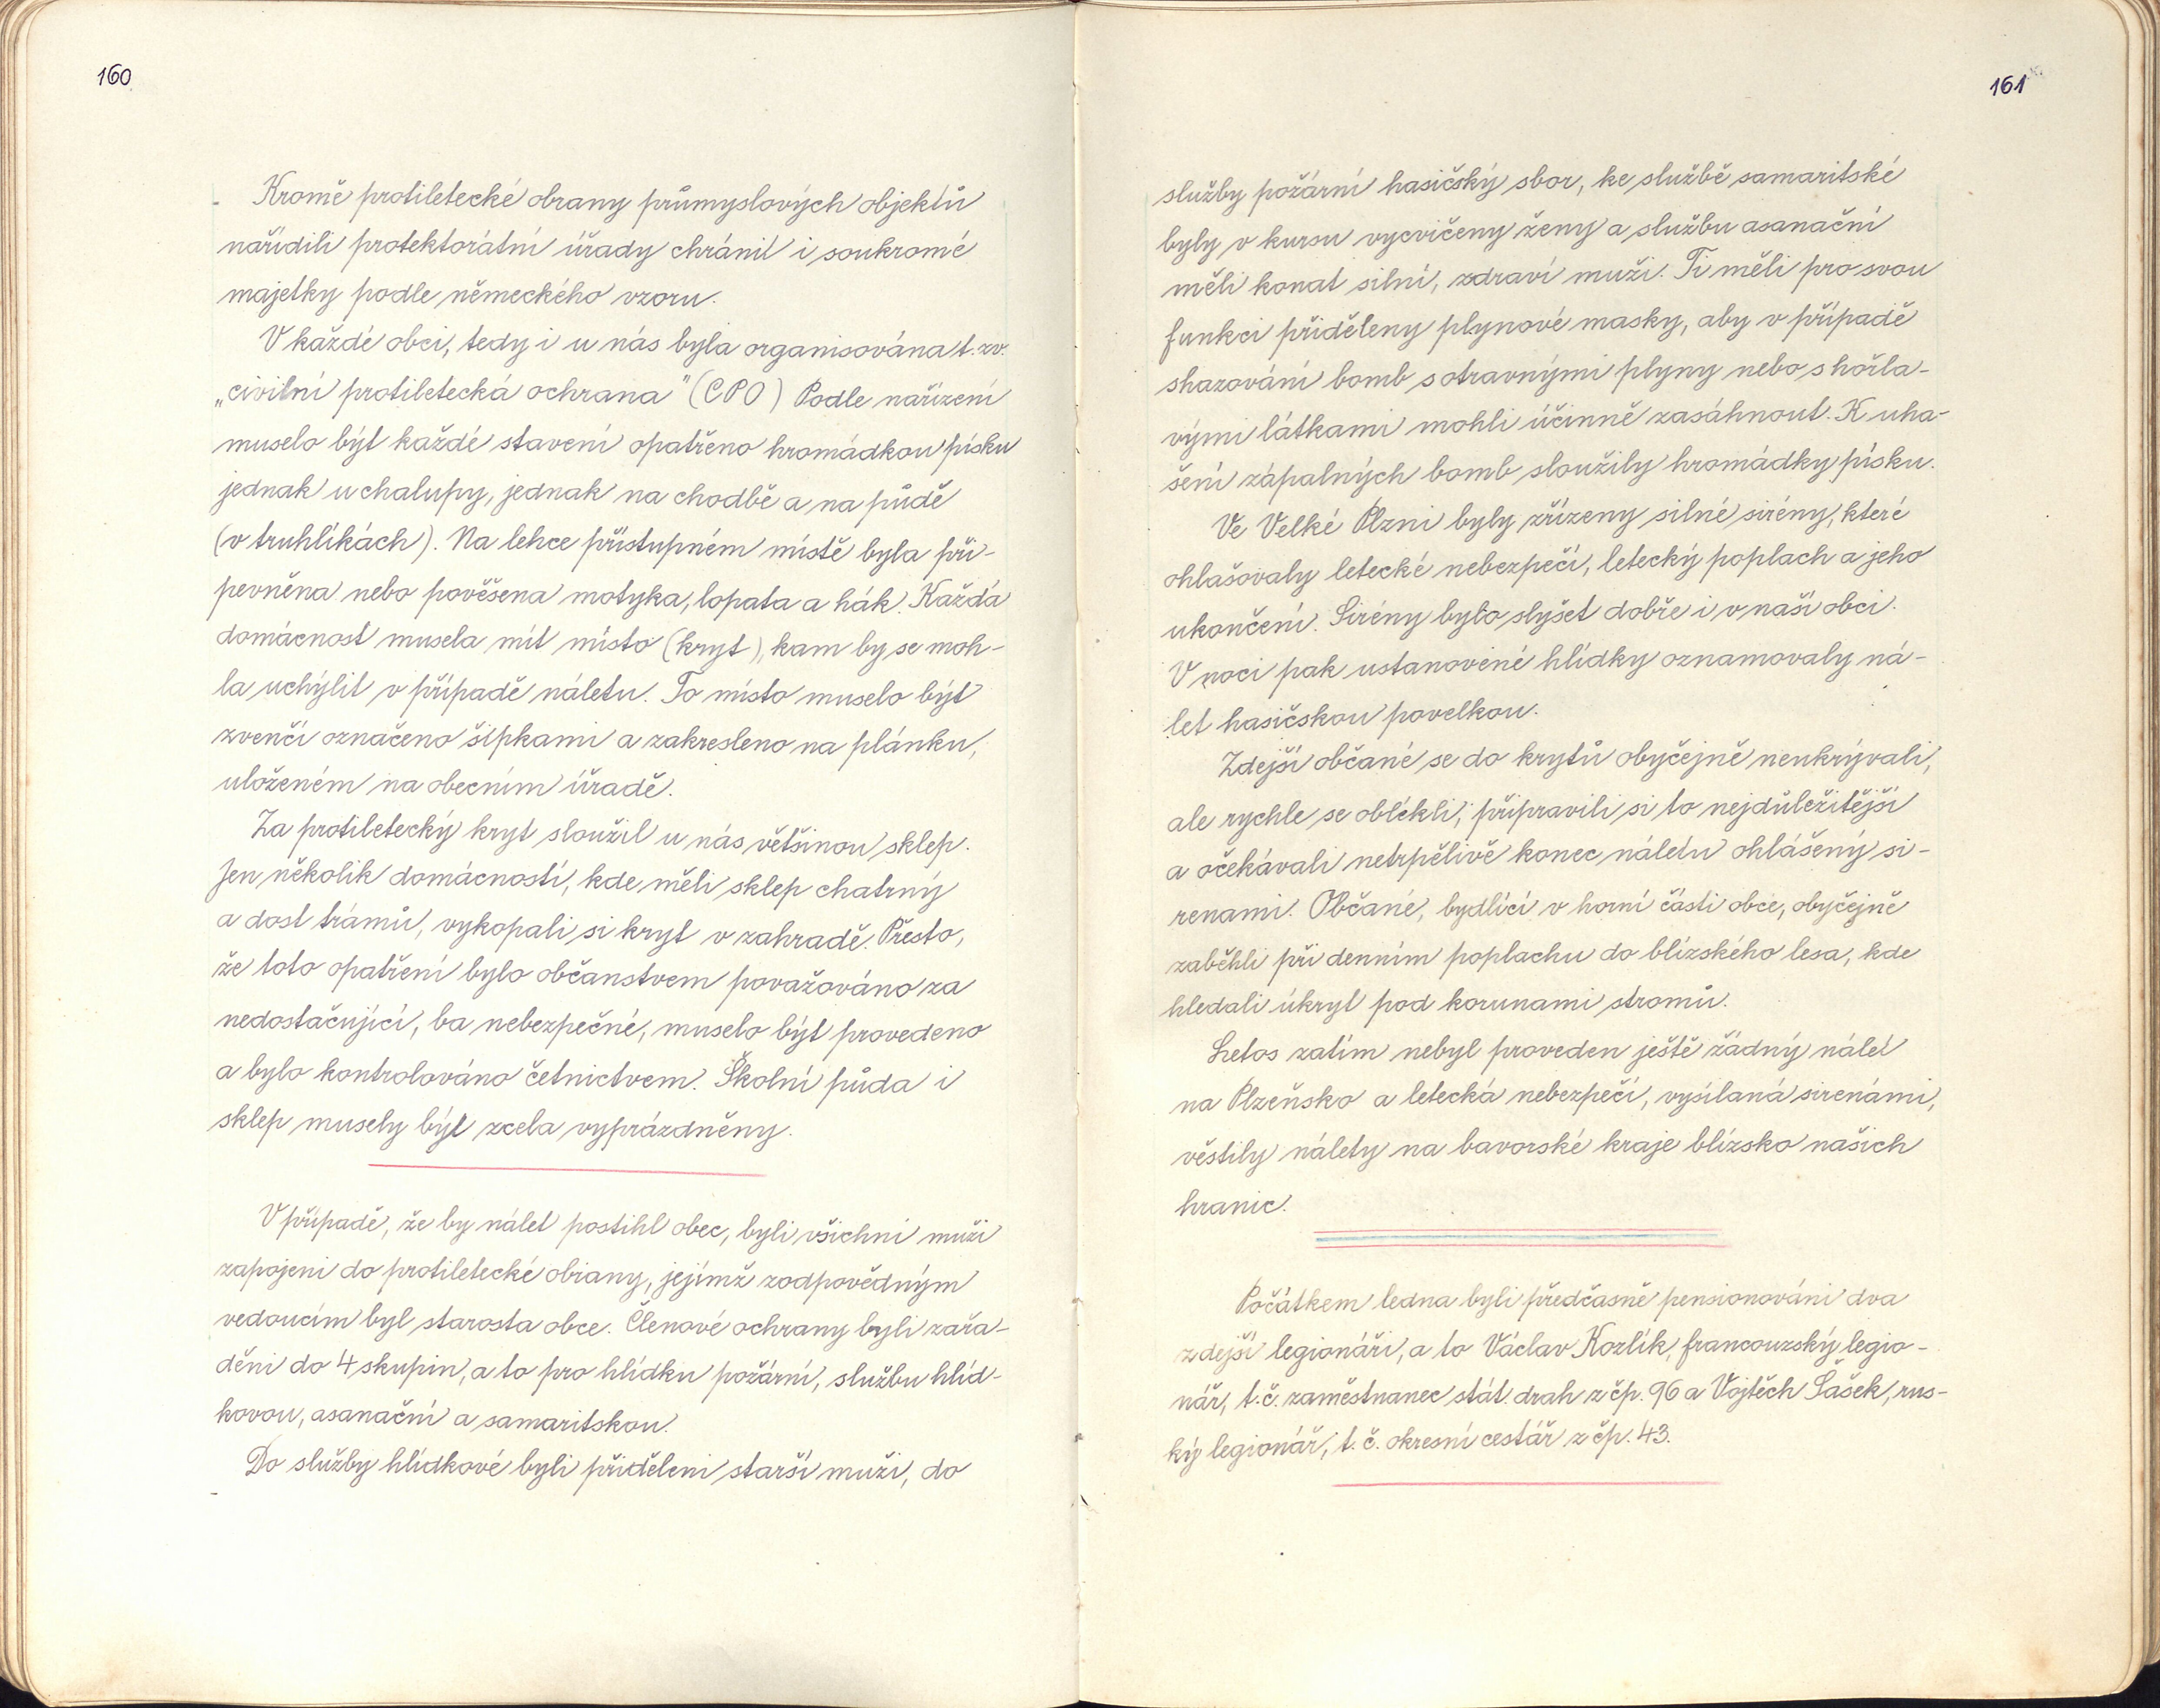 160
Kromě protiletecké obrany průmyslových objektů
nařídili protektorátní úřady chránit i soukromé
majetky podle německého vzoru.
V každé obci, tedy i u nás byla organisována t. zv.
„civilní protiletecká ochrana" (CPO) Podle nařízení
muselo být každé stavení opatřeno hromádkou písku
jednak u chalupy, jednak na chodbě a na půdě
(v truhlíkách). Na lehce přístupném místě byla při-
pevněna nebo pověšena motyka, lopata a hák. Každá
domácnost musela mít místo (kryt), kam by se moh-
la uchýlit v případě náletu. To místo muselo být
zvenčí označeno šipkami a zakresleno na plánku,
uloženém na obecním úřadě.
Za protiletecký kryt sloužil u nás většinou sklep.
Jen několik domácností, kde měli sklep chatrný
a dost trámů, vykopali si kryt v zahradě. Přesto,
že toto opatření bylo občanstvem považováno za
nedostačující, ba nebezpečné, muselo být provedeno
a bylo kontrolováno četnictvem. Školní půda i
sklep musely být zcela vyprázdněny.
V případě, že by nálet postihl obec, byli všichni muži
zapojeni do protiletecké obrany, jejímž zodpovědným
vedoucím byl starosta obce. Členové ochrany byli zařa-
děni do 4 skupin, a to pro hlídku požární, službu hlíd-
kovou, asanační a samaritskou.
Do služby hlídkové byli přiděleni starší muži, do
161
služby požární hasičský sbor, ke službě samaritské
byly v kursu vycvičeny ženy a službu asanační
měli konat silní, zdraví muži. Ti měli pro svou
funkci přiděleny plynové masky, aby v případě
shazování bomb s otravnými plyny nebo s hořla-
vými látkami mohli účinně zasáhnout. K uha-
šení zápalných bomb sloužily hromádky písku.
Ve Velké Plzni byly zřízeny silné sirény, které
ohlašovaly letecké nebezpečí, letecký poplach a jeho
ukončení. Sirény bylo slyšet dobře i v naší obci.
V noci pak ustanovené hlídky oznamovaly ná-
let hasičskou povelkou.
Zdejší občané se do krytů obyčejně neukrývali,
ale rychle se oblékli, připravili si to nejdůležitější
a očekávali netrpělivě konec náletu ohlášený si-
renami. Občané, bydlící v horní části obce, obyčejně
zaběhli při denním poplachu do blízského lesa, kde
hledali úkryt pod korunami stromů.
Letos zatím nebyl proveden ještě žádný nálet
na Plzeňsko a letecká nebezpečí, vysílaná sirenámi,
věstily nálety na bavorské kraje blízsko našich
hranic.
Počátkem ledna byli předčasně pensionováni dva
zdejší legionáři, a to Václav Kozlík, francouzský legio-
nář, t. č. zaměstnanec stát. drah z čp. 96 a Vojtěch Sašek, rus-
ký legionář, t. č. okresní cestář z čp. 43.